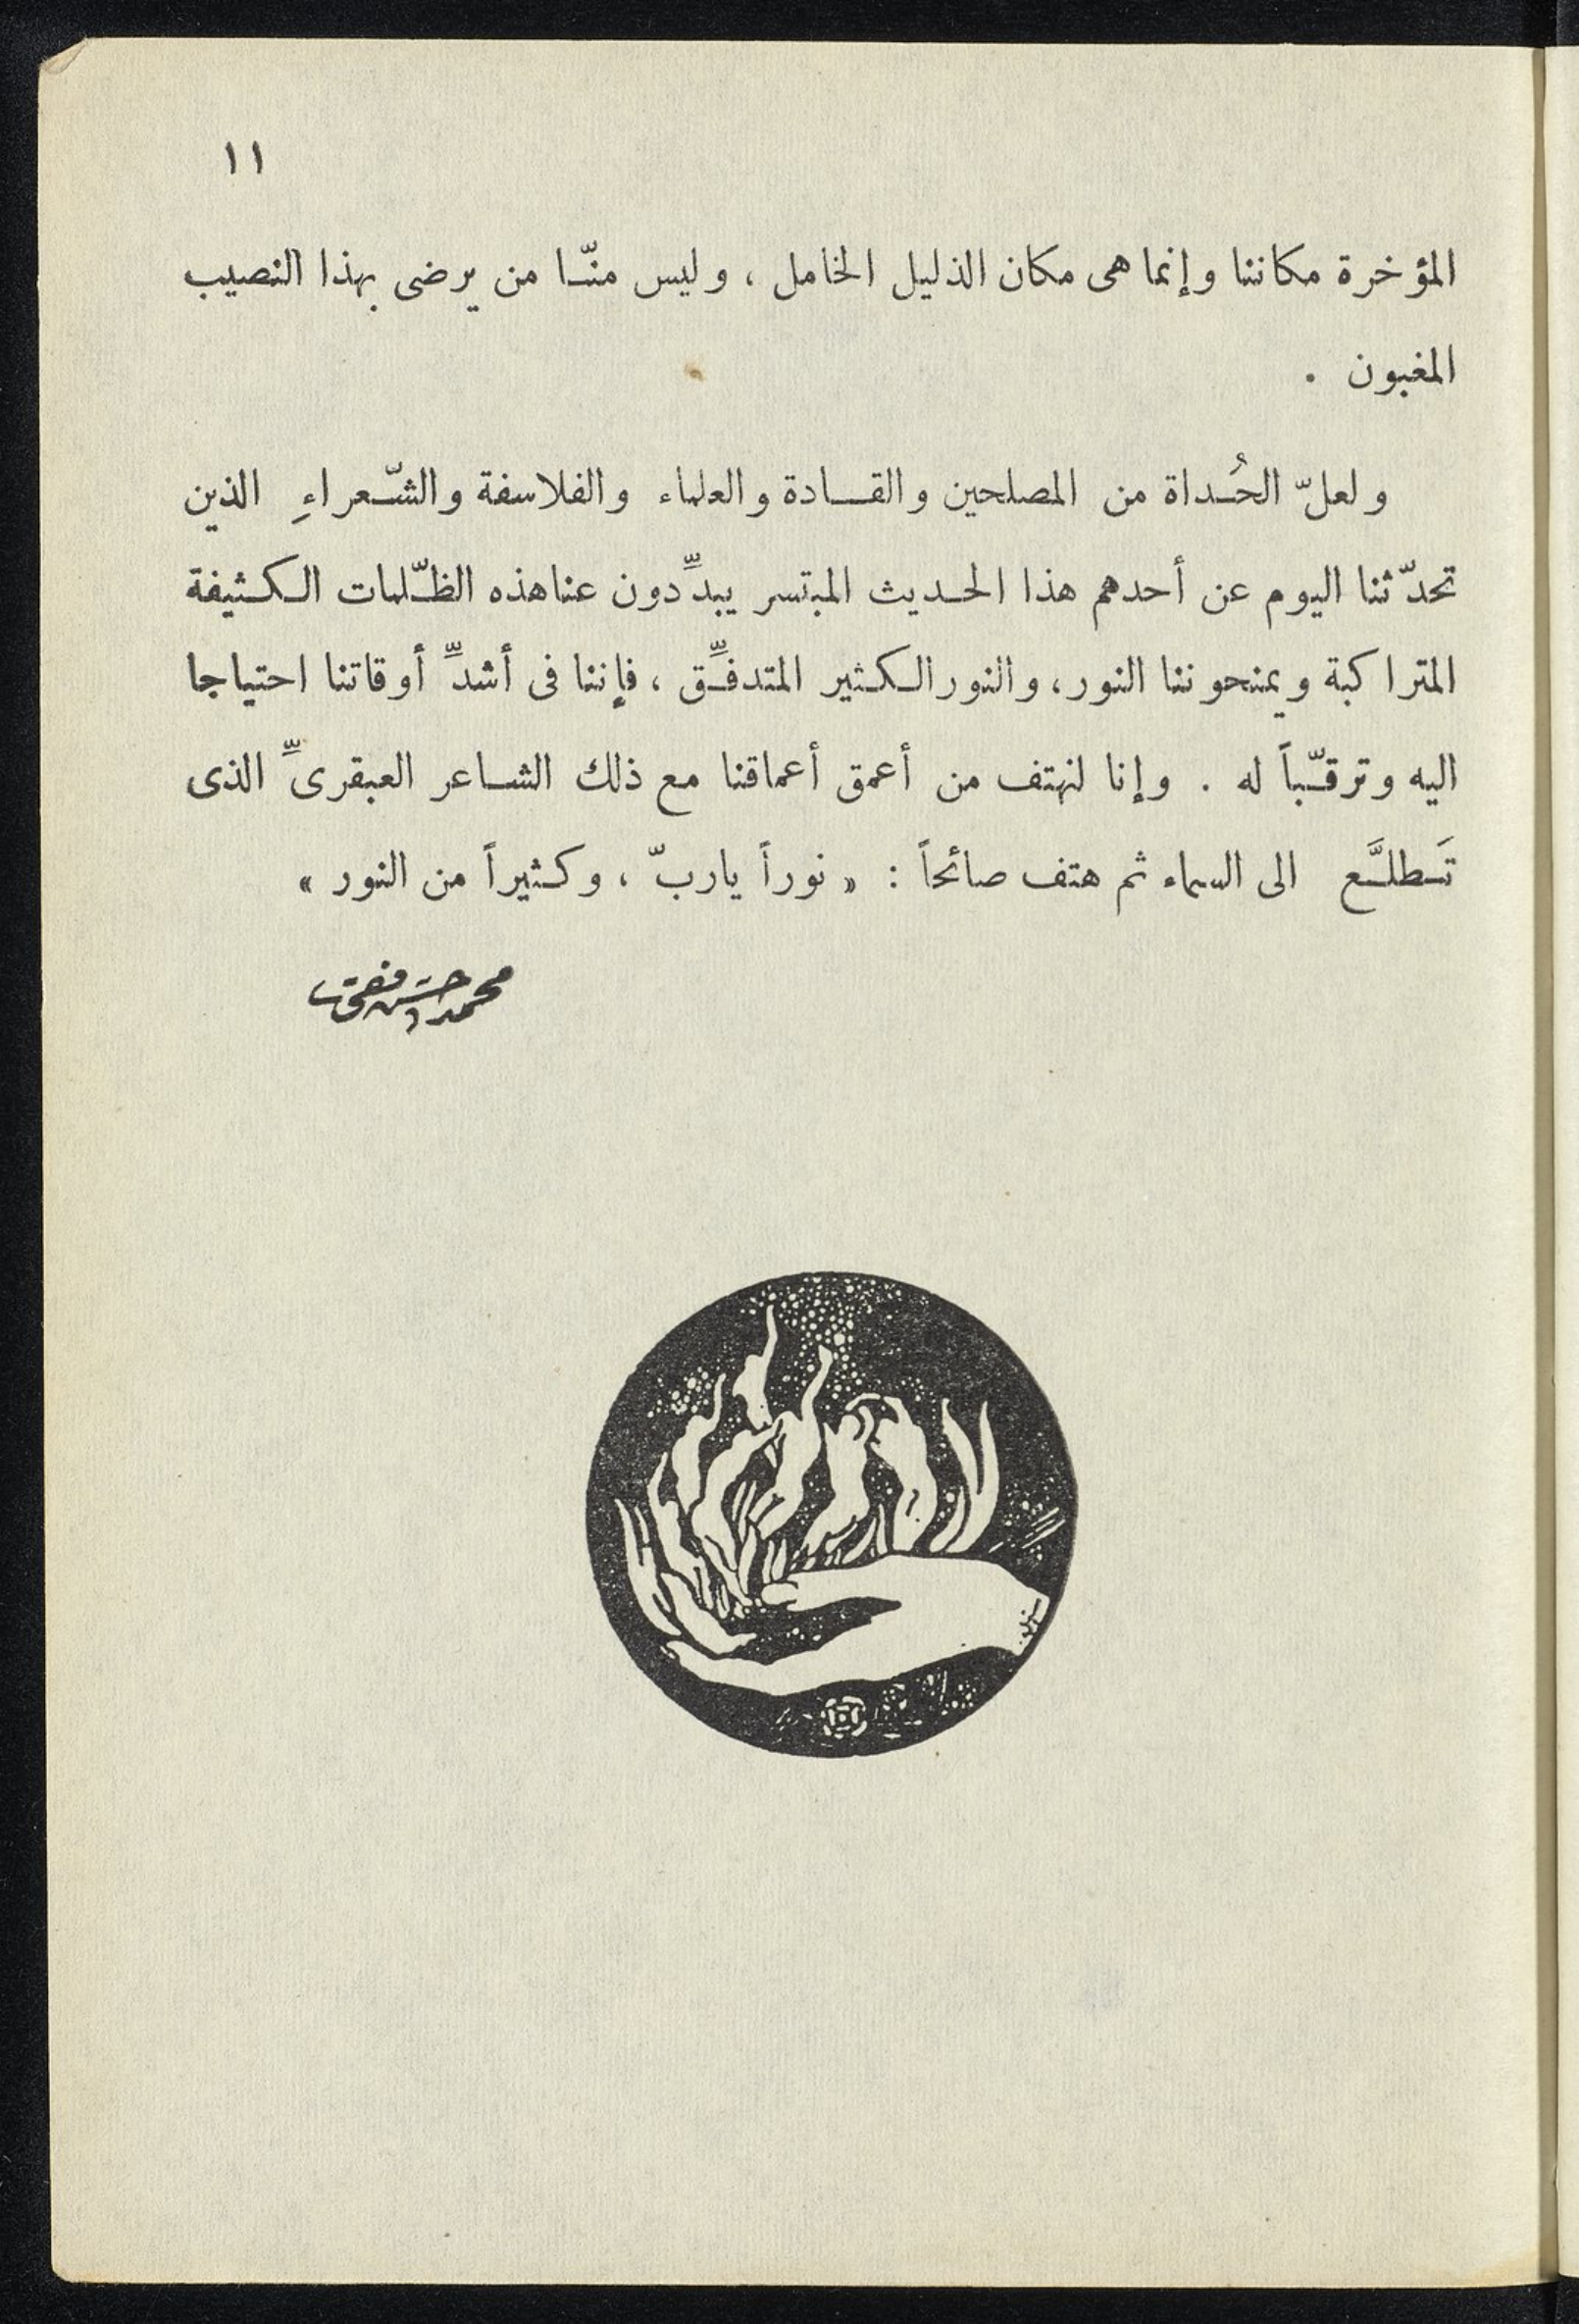 ١١
المؤخرة مكاننا وإنما هى مكان الذليل الخامل ، وليس منّا من يرضى بهذا النصيب
المغبون .
ولعلّ الحُداة من المصلحين والقادة والعلماء والفلاسفة والشّعراءِ الذين
تحدّثنا اليوم عن أحدهم هذا الحديث المبتسر يبدِّدون عنا هذه الظّلمات الكثيفة
المتراكبة ويمنحوننا النور، والنور الكثير المتدفِّق ، فإننا فى أشدِّ أوقاتنا احتياجا
اليه وترقّباً له . وإنا لنهتف من أعمق أعماقنا مع ذلك الشاعر العبقرىِّ الذى
تَطلَّع الى السماء ثم هتف صائحاً : « نوراً يارب ّ ، وكثيراً من النور »
محمد حسن فقى